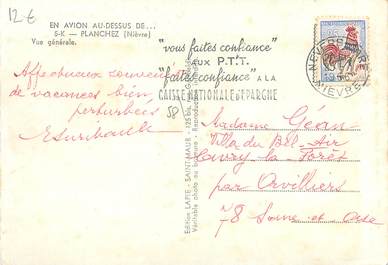 12€
EN AVION AU-DESSUS DE...
5-K — PLANCHEZ (Nièvre)
Vue générale.
"vous faites confiance"
aux P.T.T.
"faites confiance" A LA
CAISSE NATIONALE D'EPARGNE
NIEVRE
Affectueux souvenir
de vacances bien
perturbées
58
Edition LAPIE - SAINT-MAUR
Véritable photo au bromure - Reproduction
Madame Géan
Villa du Bel-Air
Civry-la-Forêt
par Orvilliers
78 Seine et Oise